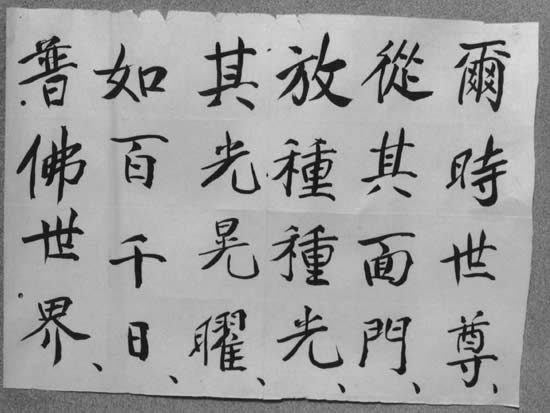 爾時世尊、
從其面門、
放種種光、
其光晃曜、
如百千日、
普佛世界、